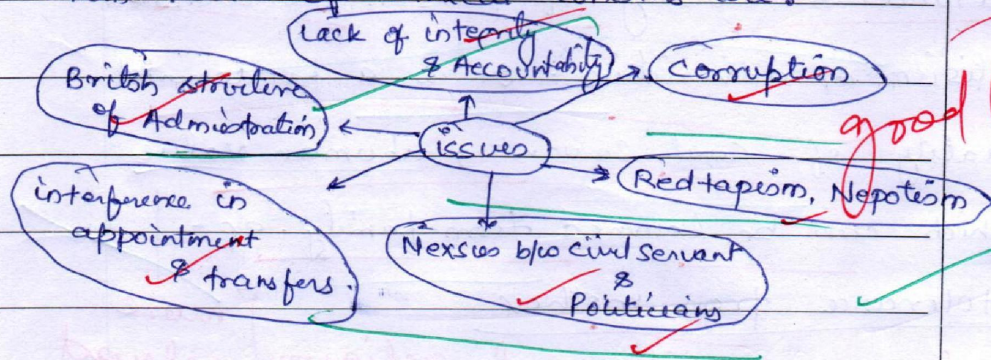 Lack of integrity
& Accountability
Corruption
British structure
of Administration
issues
good
Redtapism, Nepotism
interference in
appointment
& transfers.
Nexsus b/w civil servant
&
Politicians